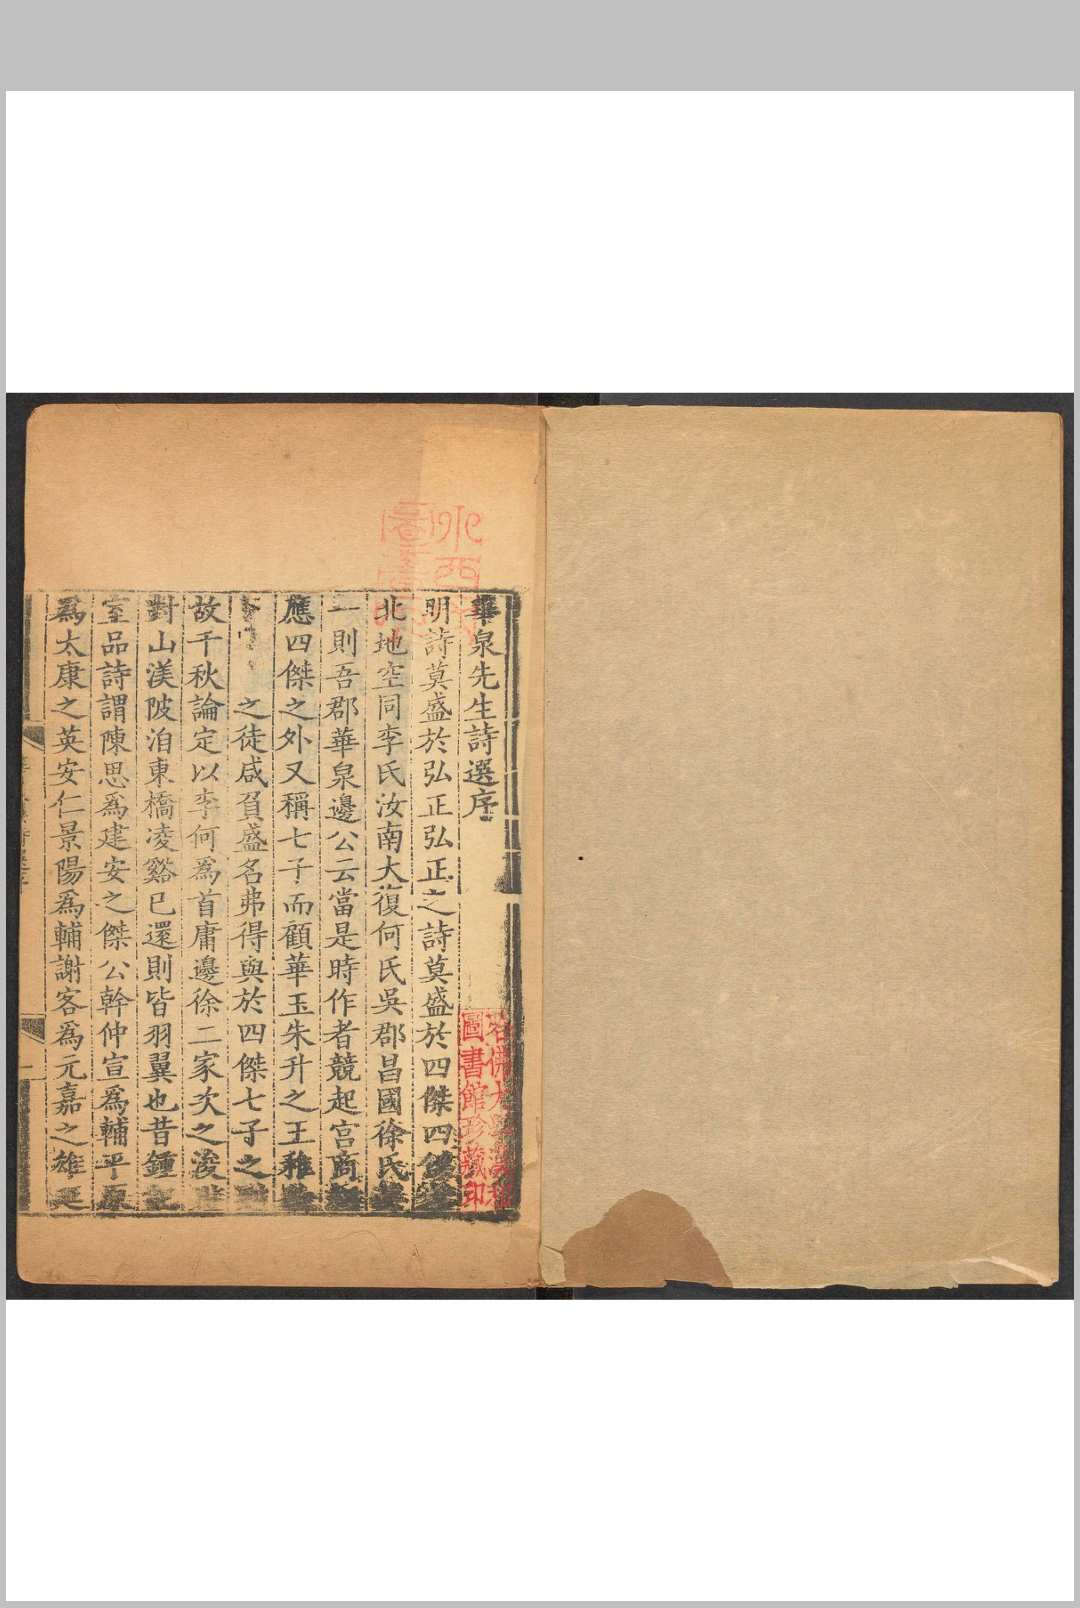 華泉先生詩選序
明詩莫盛於弘正弘正之詩莫盛於四傑四傑
北地空同李氏汝南大復何氏吳郡昌國徐氏其
一則吾郡華泉邊公云當是時作者競起宮商
應四傑之外又稱七子而顧華玉朱升之王稚
之徒咸負盛名弗得與於四傑七子之
故千秋論定以李何爲首庸邊徐二家次之浚
對山渼陂洎東橋凌谿已還則皆羽翼也昔鍾記
室品詩謂陳思爲建安之傑公幹仲宣爲輔平原
爲太康之英安仁景陽爲輔謝客爲元嘉之雄延
圖書館珍藏印